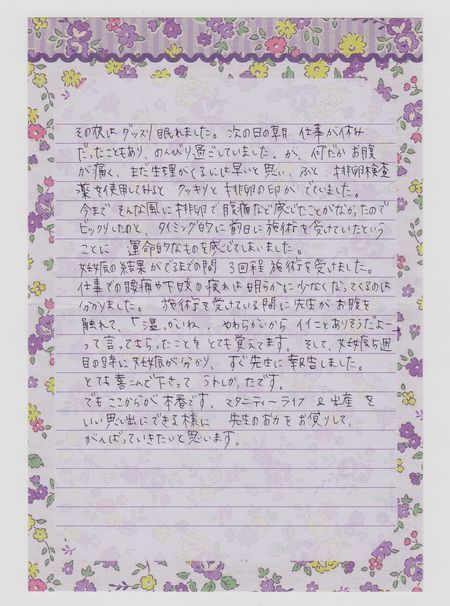 その夜はグッスリ眠れました。次の日の朝 仕事が休み
だったこともあり、のんびり過ごしていました。が、何だかお腹
が痛く、まだ生理がくるには早いと思い、ふと 排卵検査
薬を使用してみると クッキリと排卵の印がでていました。
今まで そんな風に排卵で腹痛など感じたことがなかったので
ビックリしたのと、タイミング的に前日に施術を受けていたという
ことに 運命的なものを感じてしまいました。
妊娠の結果がでるまでの間 3回程施術を受けました。
仕事での腰痛や下肢の疲れは明らかに少なくなってくるのは
分かりました。 施術を受けている間に先生がお腹を
触れて、「温かいね、やわらかいから イイことありそうだよー
って言ってもらったことを とても覚えてます。そして、妊娠5週
目の時に妊娠が分かり、すぐ先生に報告しました。
とても喜こんで下さって うれしかったです。
でもここからが本番です。マタニティーライフ & 出産 を
いい思い出にできる様に 先生のお力をお借りして、
がんばっていきたいと思います。